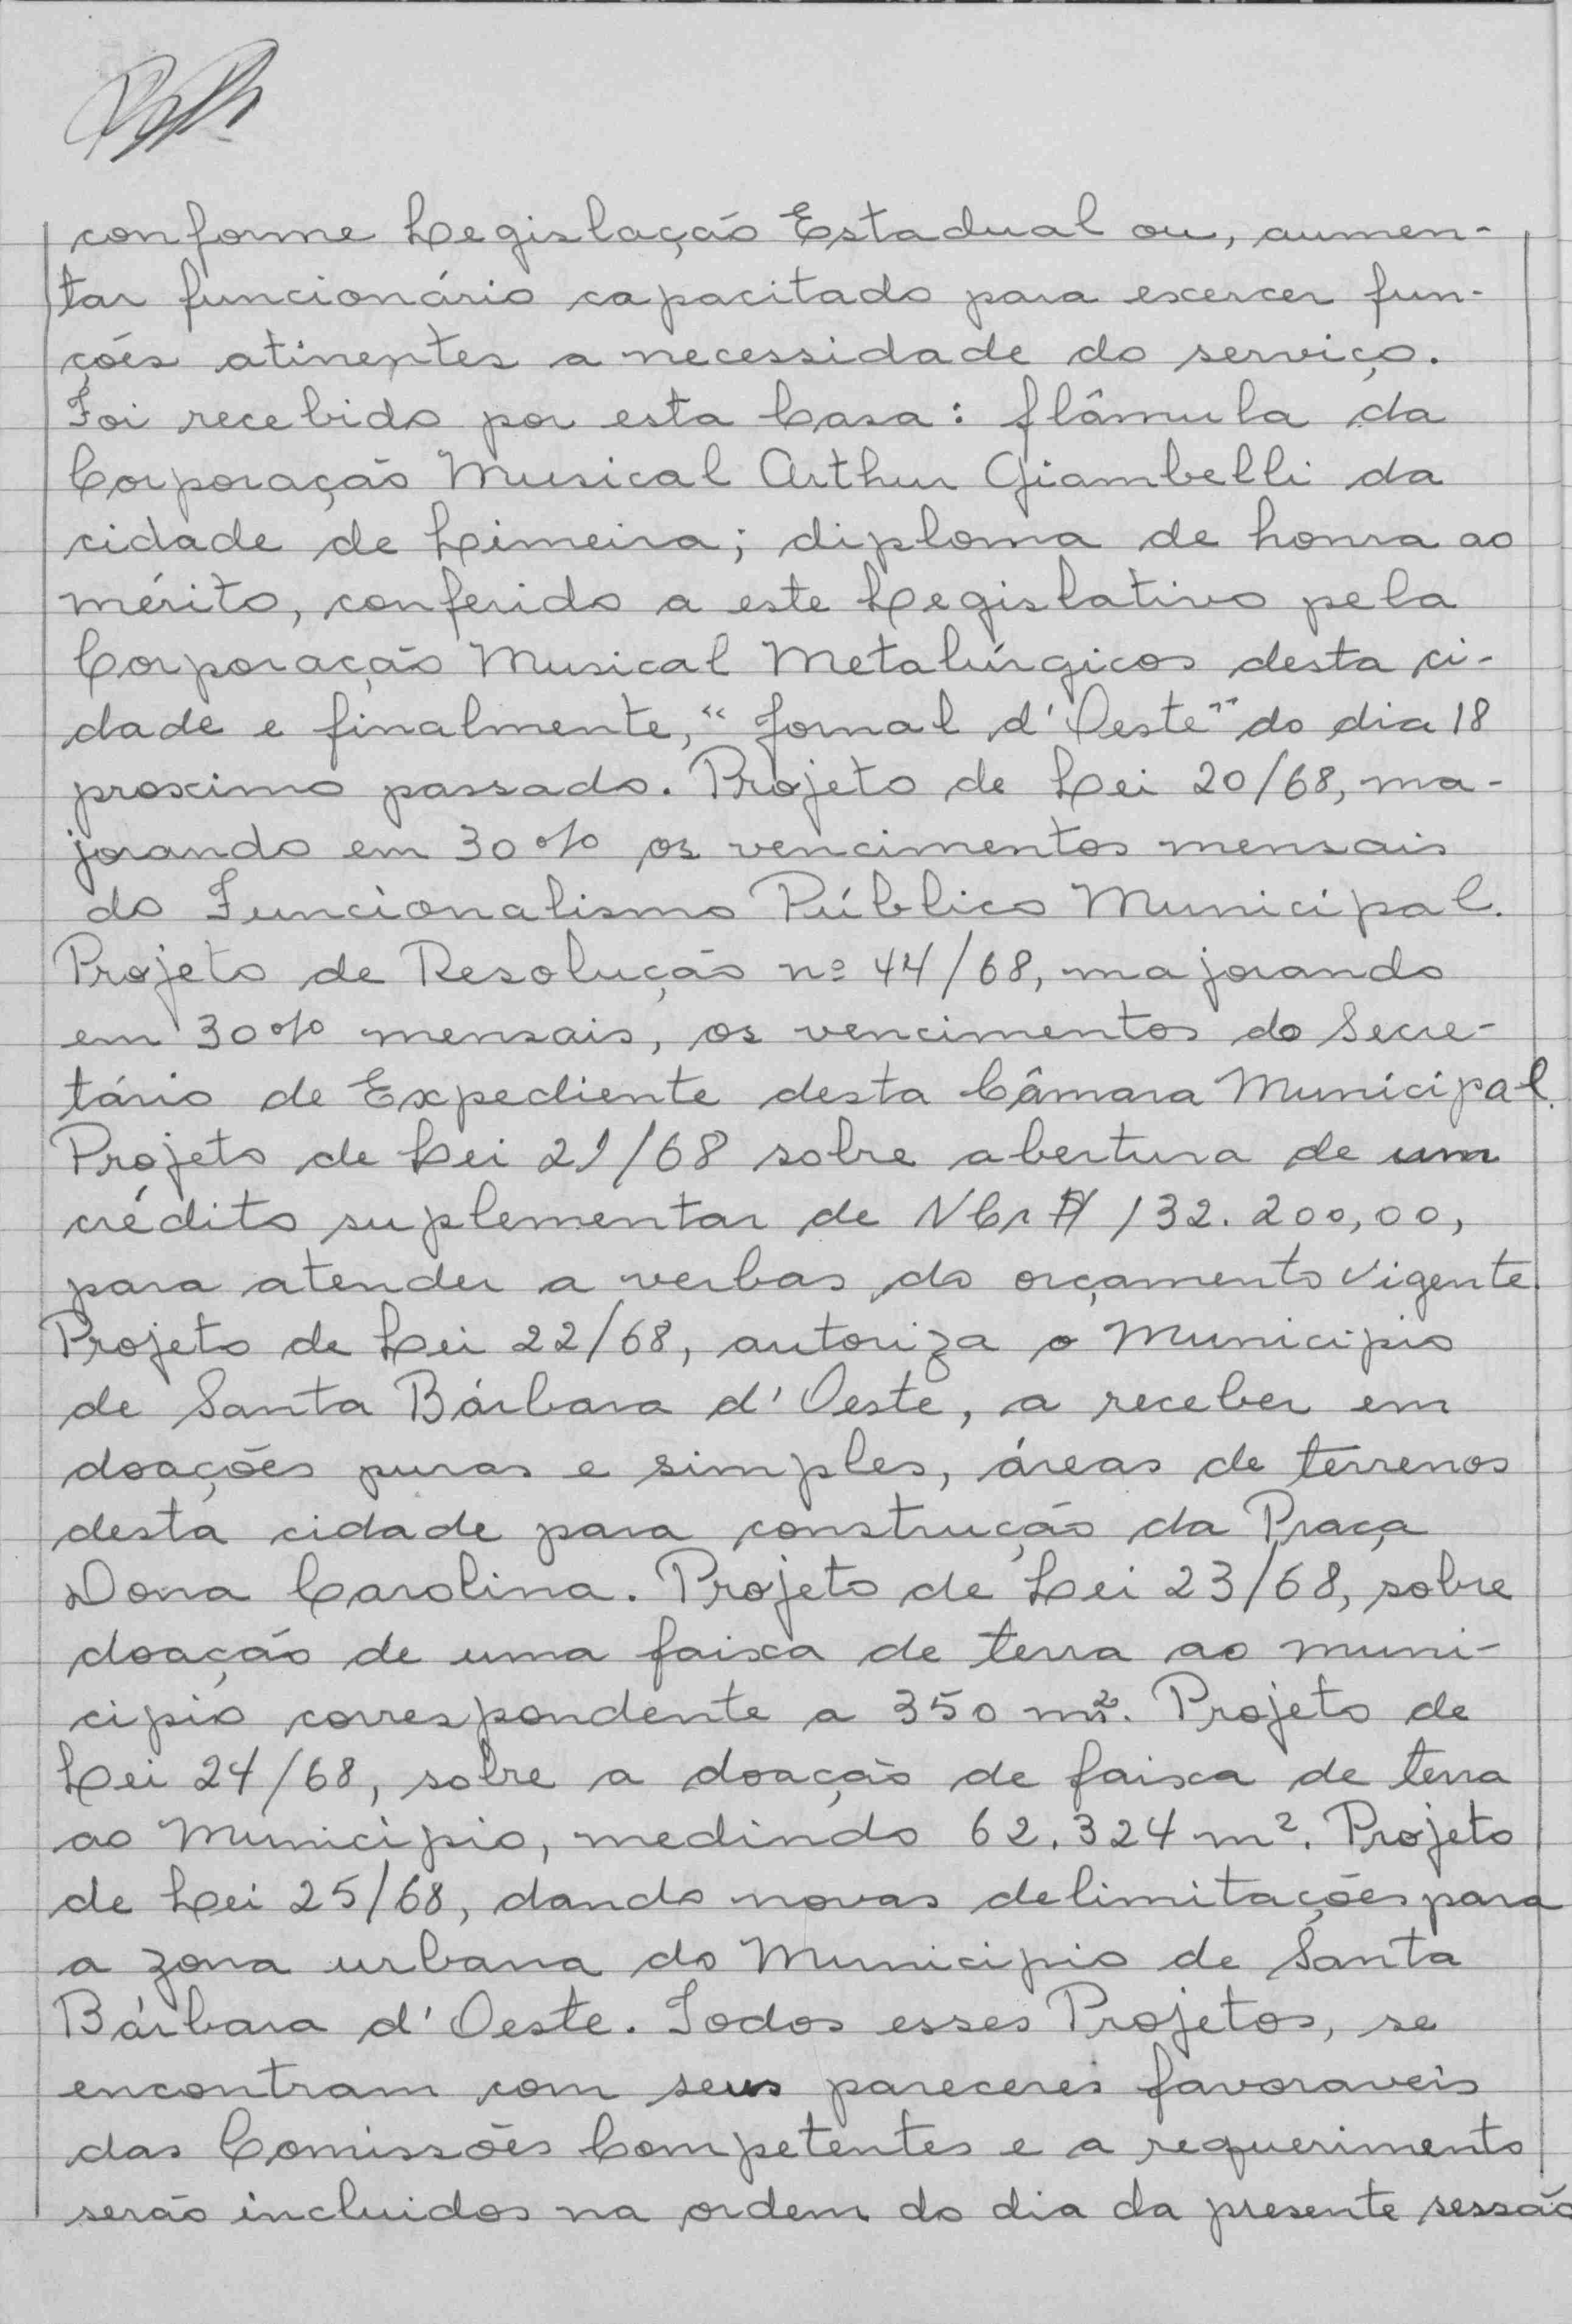 conforme Legislação Estadual ou, aumen-
tar funcionário capacitado para exercer fun-
ções atinentes a necessidade do serviço.
Foi recebido por esta Casa: flâmula da
Corporação Musical Arthur Giambelli da
cidade de Limeira; diploma de honra ao
mérito, conferido a este Legislativo pela
Corporação Musical Metalúrgicos desta ci-
dade e finalmente, "Jornal d'Oeste" do dia 18
proximo passado. Projeto de Lei 20/68, ma-
jorando em 30% os vencimentos mensais
do Funcionalismo Público Municipal.
Projeto de Resolução nº 44/68, majorando
em 30% mensais, os vencimentos do Secre-
tário de Expediente desta Câmara Municipal.
Projeto de Lei 21/68 sobre abertura de um
crédito suplementar de NCr$ 132.200,00,
para atender a verbas do orçamento vigente.
Projeto de Lei 22/68, autoriza o Municipio
de Santa Bárbara d'Oeste, a receber em
doações puras e simples, áreas de terrenos
desta cidade para construção da Praça
Dona Carolina. Projeto de Lei 23/68, sobre
doação de uma faixa de terra ao muni-
cipio correspondente a 350 m². Projeto de
Lei 24/68, sobre a doação de faixa de terra
ao Municipio, medindo 62.324 m². Projeto
de Lei 25/68, dando novas delimitações para
a zona urbana do Municipio de Santa
Bárbara d'Oeste. Todos esses Projetos, se
encontram com seus pareceres favoraveis
das Comissões Competentes e a requerimento
serão incluidos na ordem do dia da presente sessão